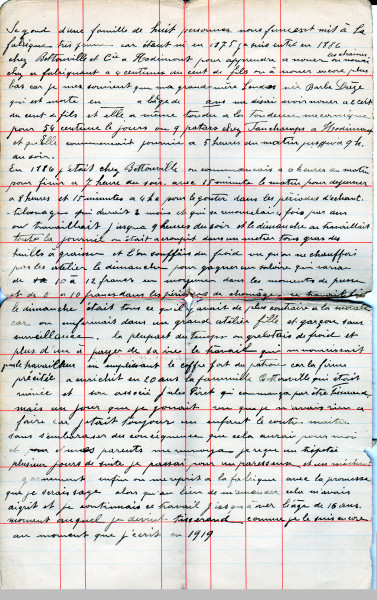 Second d'une famille de huit personnes nous fumes mit à la
fabrique très jeune car étant né en 1875 je suis entré en 1886
chez Bottouville et Cie a Hodimont pour apprendre a nouer les chaines
on nouait
chez en fabriquant a 4 centimes du cent de fils ou à nouer encore plus
bas car je me souviens que ma grandmère née Barbe Drèze
qui est morte en à l'âge de ans me disait avoir nouer a 2 cent
du cent de fils et elle a même tondu a la tondeuse mécanique
pour 54 centime le jours ou 9 patars chez a Hodimont
et qu'Elle commencait journée a 5 heures du matin jusqu'a 9 h.
du soir.
En 1886 j'étoit chez Bottouville on commencait a 6 heures du matin
pour finir a 7 heure du soir. avec 15 minutes le matin pour dejeuner
a 8 heures et 15 minutes a 4 h pour le gouter dans les périodes d'échant-
tilonage qui durait 2 mois et qui se renouvelait 2 fois par ans
on travaillait jusqu'a 9 heures du soir et le dimanche on travaillait
toute la journée on était accroupit dans un metier tous gras des
huiles a graisser et l'on souffrait du froid vu qu'on ne chauffait
pas les atelier le dimanche pour gagner un salaire qui varia
de 10 a 12 francs en moyenne dans les moments de presse
et de 6 a 10 francs dans les périodes de chomage ce travail
le dimanche était tous ce qu'il y avait de plus contraire a la morale
car on enfermait dans un grand atelier fille et garçon sans
surveillance la plupart du temps on grelottait de froid et
plus d'un a payer de sa vie le travail qui nourrissait
le travailleur en emplissant le coffre fort du patron car la firme
précitée a enrichit en 20 ans la famille Bottouville qui était
ruinée et son associé Jules Piret qui commença par être
mais un jour que je jouait vu que je n'avais rien a
faire car j'étais toujours un enfant le contre maître
sans s'embarasser du conséquences que cela aurait pour moi
et pour mes parents me renvoya je que un
plusieurs jours de suite je passai pour un paresseux et un méchant
garnement enfin on me reprit a la fabrique avec la promesse
que je serais sage alors qu'au lieu de m'amender cela m'avais
aigrit et je continuais ce travail jusqu'a mon âge de 16 ans.
moment auquel je devint tisserand comme je le suis encore
au moment que j'écrit en 1919